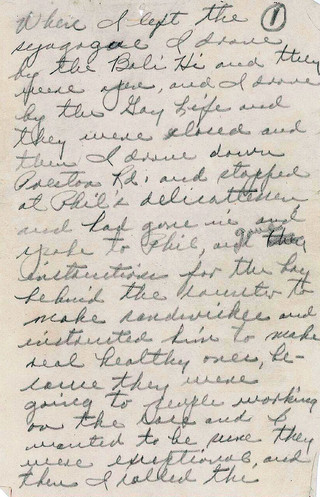 When I left the ①
synagogue I drove
by the Bali Hi and they
were open, and I drove
by the Gay Life and
they were closed and
then I drove down
Preston Rd; and stopped
at Phil's delicatessen
and had gone in and
spoke to Phil, and gave
instructions for the boy
behind the counter to
make sandwiches and
instructed him to make
real healthy ones, be-
cause they were
going to people working
on the and I
wanted to be sure they
were exceptional, and
then I called the